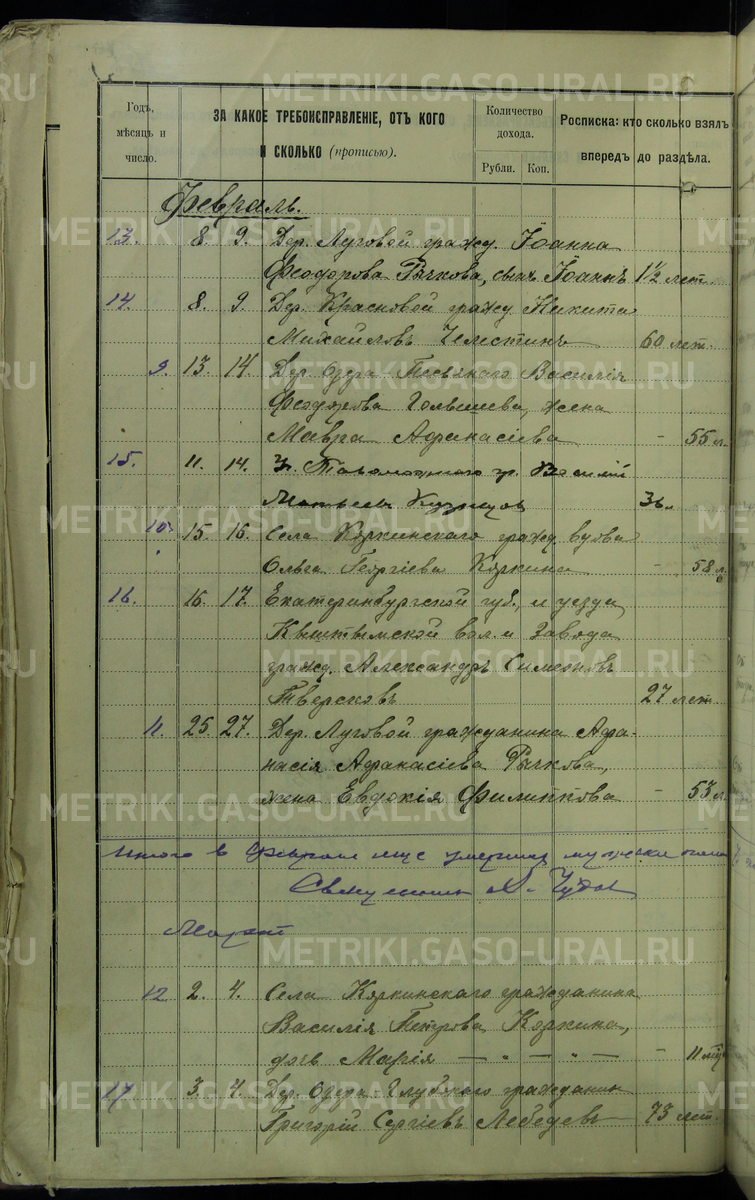 Годъ, мѣсяцъ и число.
ЗА КАКОЕ ТРЕБОИСПРАВЛЕНІЕ, ОТЪ КОГО И СКОЛЬКО (прописью).
Количество дохода.
Рубли. Коп.
Росписка: кто сколько взялъ впередъ до раздѣла.
Февраль.
13. 8. 9. Дер. Луговой гражд. Іоанна
Феодорова Рычкова, сынъ Іоаннъ 1½ лет.
14. 8. 9. Дер. Красновой гражд. Никита
Михайловъ 60 лет.
9. 13. 14. Дер. Озера Василія
Феодорова Голышева, жена
Мавра Афанасіева - 55 л.
15. 11. 14. гр. Василій
Матвѣевъ Кузнецов 36 л
10. 15. 16. Села Коркинскаго гражд. вдова
Ольга Георгіева Коркина - 58 л.
16. 16. 17. Екатеринбургской губ. и уезда
Кыштымской вол. и Завода
гражд. Александръ Симеоновъ
Тверсковъ 27 лет.
11. 25. 27. Дер. Луговой гражданина Афа-
насія Афанасіева Рычкова,
жена Евдокія Филипкова - 53 л.
Итого в Феврале
Священникъ Чудов
Март
12 2. 4. Села Коркинскаго гражданина
Василія Петрова Коркина,
дочь Марія — „ — „ — - 11 лѣт
17 3. 4. Дер. Озера-Глубокаго гражданин
Григорій Сергіевъ Лебедевъ 73 лет.
METRIKI.GASO-URAL.RU